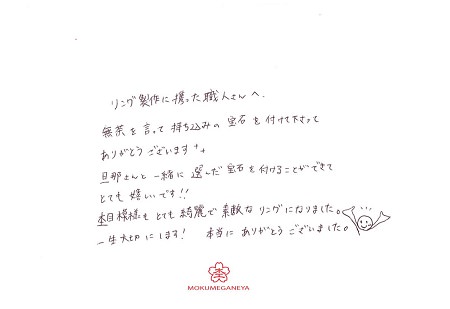 リング製作に携った職人さんへ.
無茶を言って持ち込みの宝石を付けて下さって
ありがとうございます++
旦那さんと一緒に選んだ宝石を付けることができて
とても嬉しいです!!
木目模様もとても綺麗で素敵なリングになりました。
一生大切にします! 本当にありがとうございました。
MOKUMEGANEYA